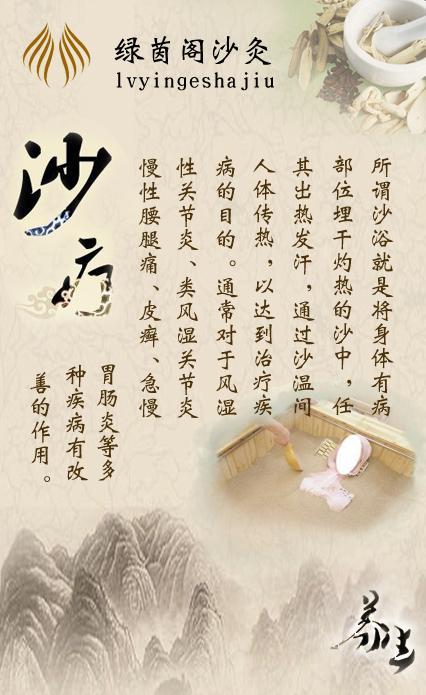 绿茵阁沙灸
lvyingeshajiu
沙疗
所谓沙浴就是将身体有病
部位埋于灼热的沙中，任
其出热发汗，通过沙温间
人体传热，以达到治疗疾
病的目的。通常对于风湿
性关节炎、类风湿关节炎
慢性腰腿痛、皮癣、急慢
胃肠炎等多
种疾病有改
善的作用。
养生